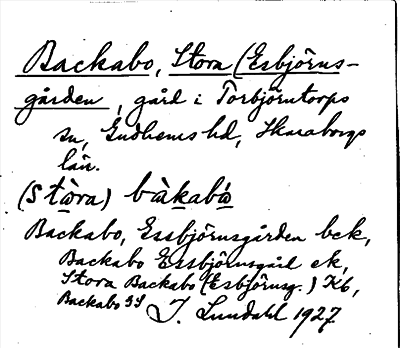 Backabo, Stora (Esbjörns-
gården, gård i Torbjörntorps
sn, Gudhems hd, Skaraborgs
län.
(stòra) bàkabó
Backabo, Essbjörnsgården bek,
Backabo Essbjörnsgård ek,
Stora Backabo (Esbjörnsg.) Kb,
Backabo GS
I. Lundahl 1927